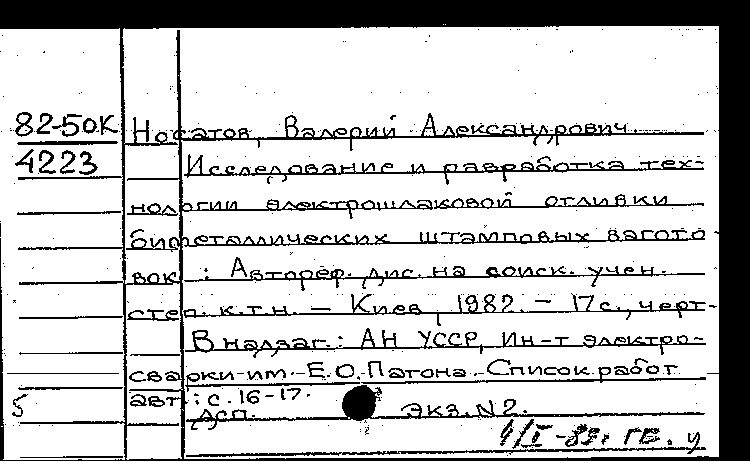 82-50К Носатов, Валерий Александрович.
4223 Исследование и разработка тех-
нологии электрошлаковой отливки
биметаллических штамповых загото-
вок : Автореф. дис. на соиск. учен.
степ. к.т.н. – Киев, 1982. – 17 с., черт.
В надзаг.: АН УССР, Ин-т электро-
сварки им. Е.О.Патона. Список работ
авт.: с. 16-17.
5 Дсп. Экз. N2.